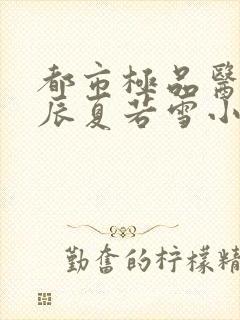 都市極品醫
辰夏若雪小
勤奮的柠檬精